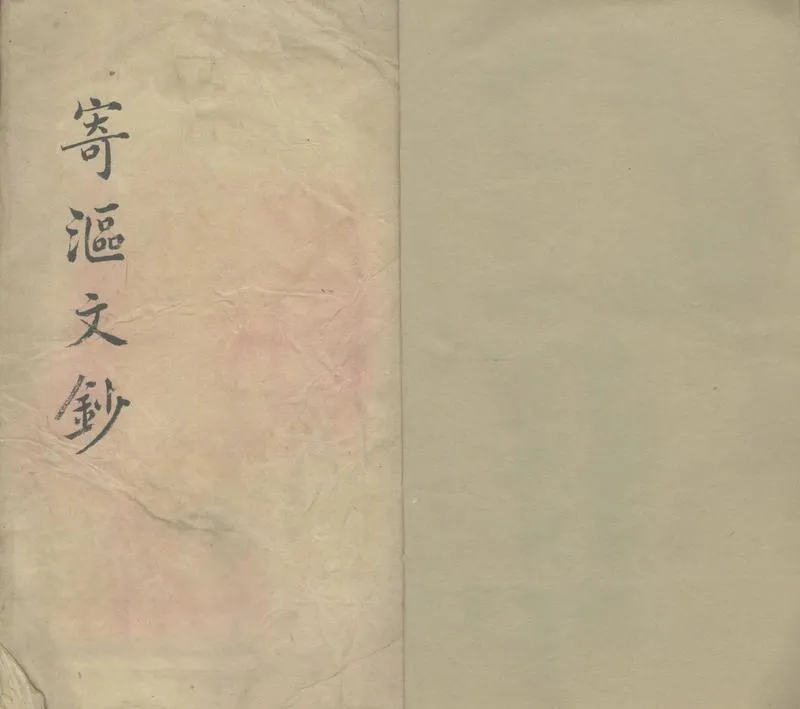 寄漚文鈔